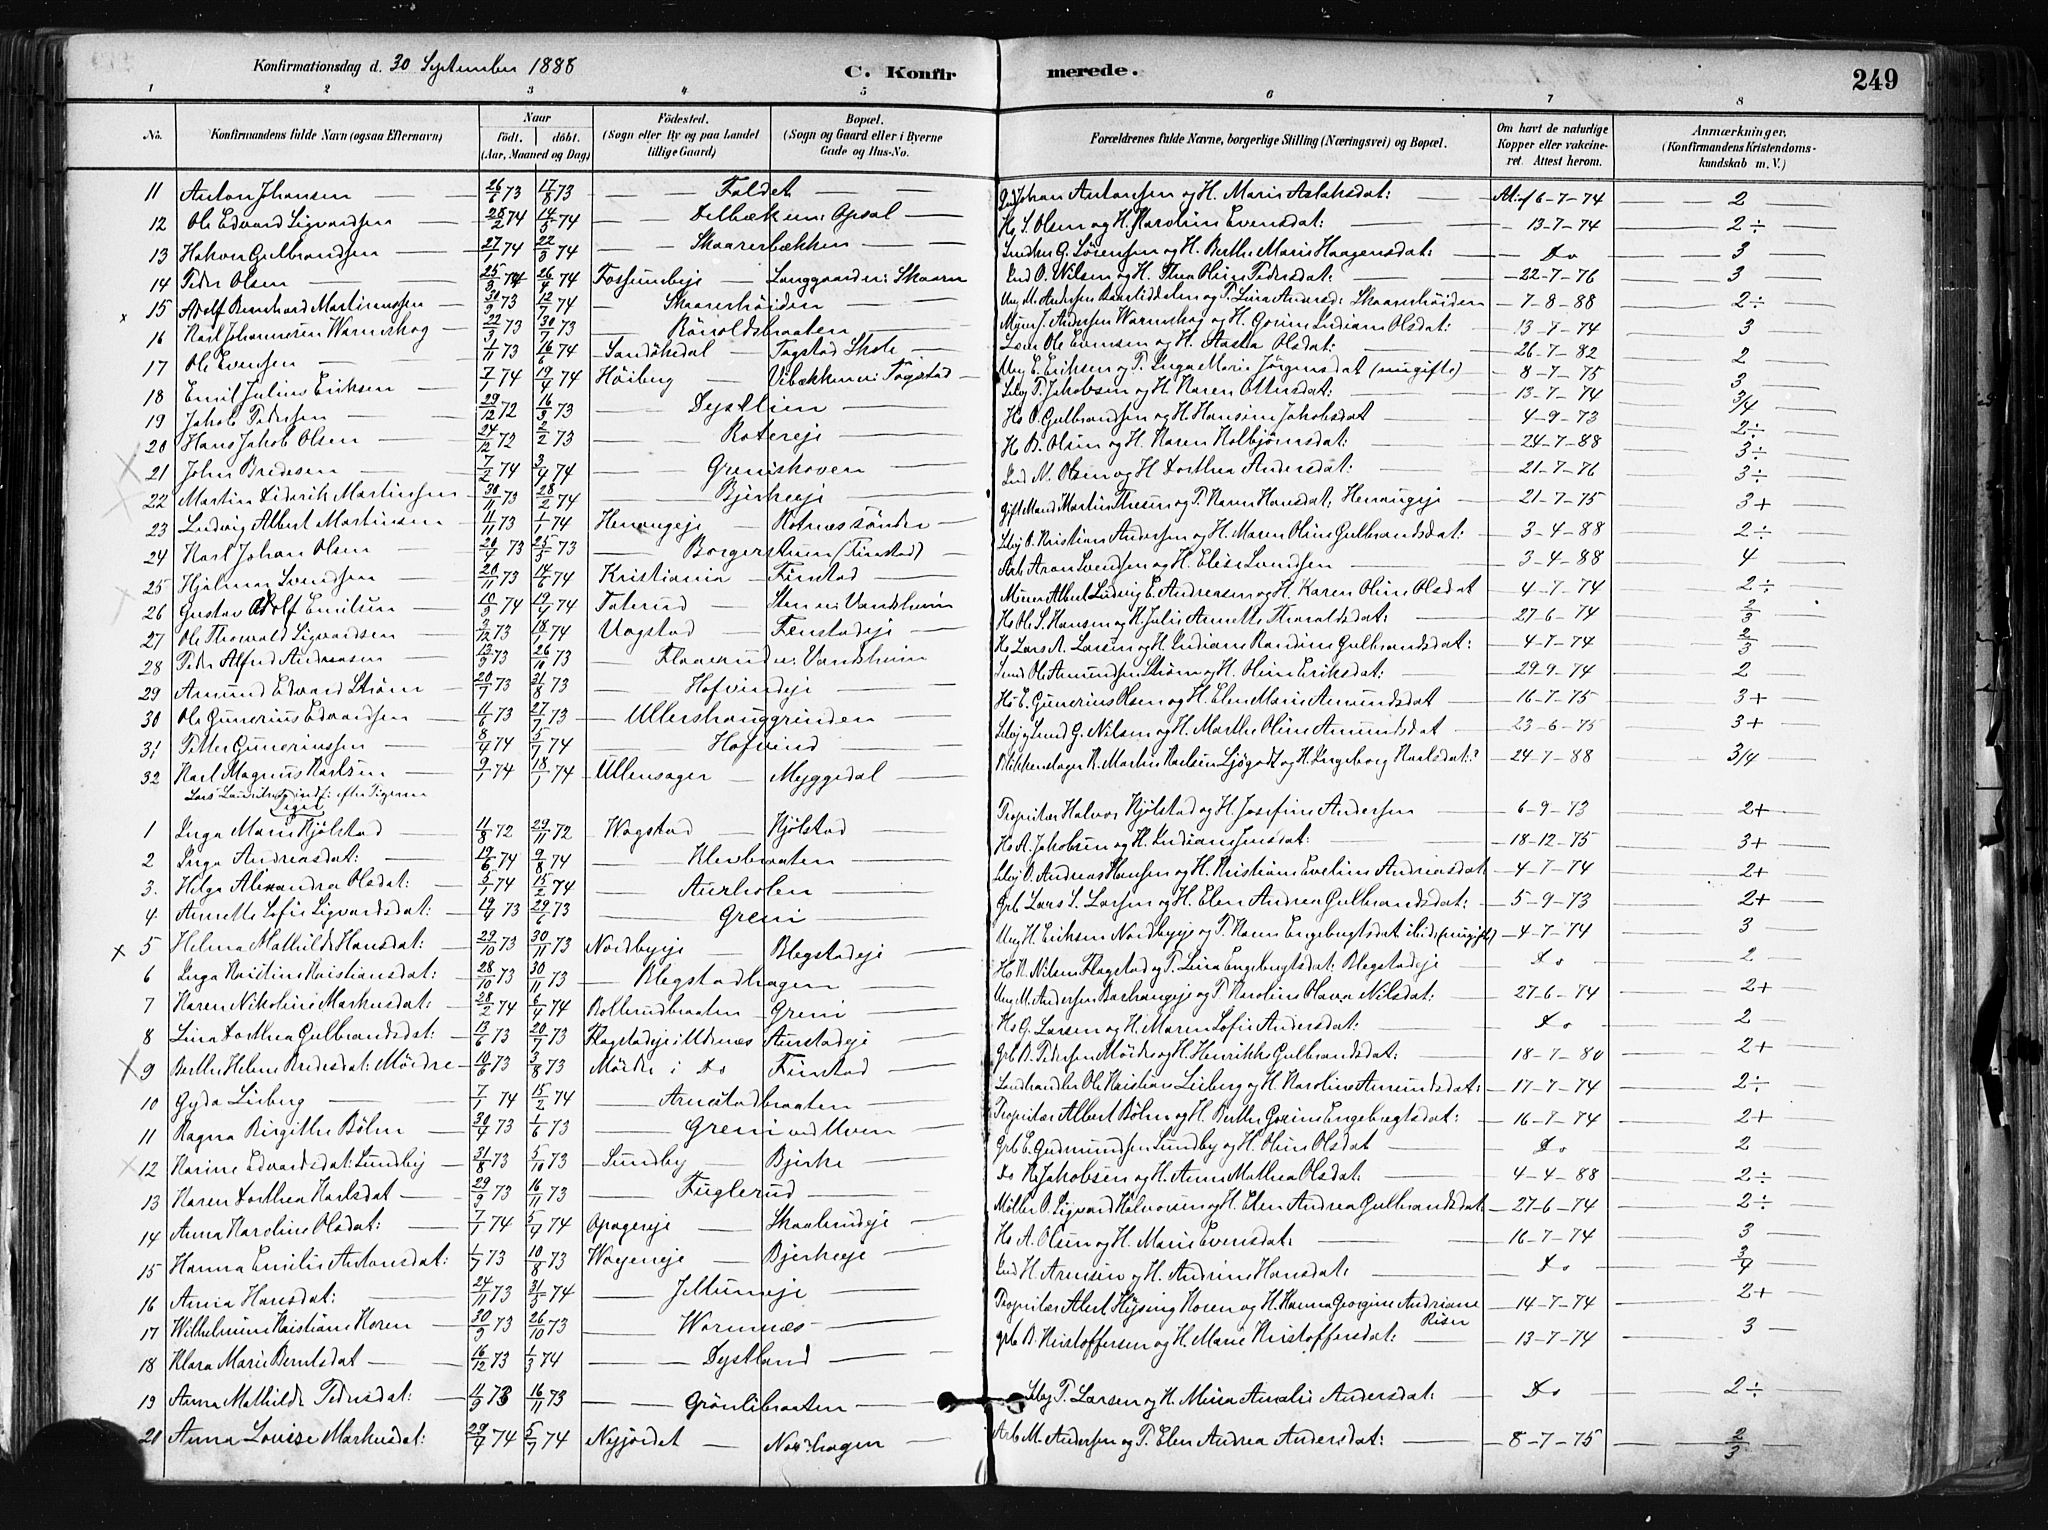 Konfirmationsdag d. 30 September 1888 C. Konfir merede. 249
1 2 3 4 5 6 7 8
No. Konfirmandens fulde Navn (ogsaa Efternavn) Naar født. døbt. (Aar, Maaned og Dag) Fødested. (Sogn eller By og paa Landet tillige Gaard) Bopæl. (Sogn og Gaard eller i Byerne Gade og Hus-No. Forældrenes fulde Navne, borgerlige Stilling (Næringsvei) og Bopæl. Om havt de naturlige Kopper eller vakcineret. Attest herom. Anmærkninger. (Konfirmandens Kristendomskundskab m. V.)
11 Anton Johansen 26/6 73 17/8 73 — Faldet — Johan Antonsen og H. Marie Aslaksdat: 6-7-74 2
12 Ole Edvard Sigvardsen 28/2 74 14/5 74 — Delbækken: Opsal — Hs S. Olsen og H. Karoline Evensdat: 13-7-74 2÷
13 Hakon Gulbrandsen 27/1 74 22/3 74 — Skaarerbækken — G. Sörensen og H. Berthe Marie Haagensdat: Do 3
14 Peder Olsen 25/3 74 26/4 74 Fossumeje Langgaarden: Skaarer Ind O. Nilsen og H. Thea Oline Pedersdat: 22-7-76 3
x 15 Adolf Bernhard Martinussen 30/9 73 12/7 74 — Skaarerhöiden — Ung M. Andersen og P. Lina Andersd: Skaarerhöiden 7-8-88 2÷
16 Karl Johannesen Warneskog 22/3 73 30/7 73 — Rönoldsbraaten — J. Andersen Warneskog og H. Gorine Indiane Olsdat: 13-7-74 3
17 Ole Evensen 1/11 73 16/6 74 Sandökedal Togstad Skole Ole Evensen og H. Aasta Olsdat: 26-7-82 2
18 Emil Julius Eriksen 7/1 74 19/4 74 Höiberg Vibækken: Togstad Ung E. Eriksen og P. Inga Marie Jörgensdat (ungifte) 8-7-75 3
19 Jakob Pedersen 29/12 72 16/3 73 — Dystlien — P. Jakobsen og H. Karen Ottersdat: 13-7-74 3/4
20 Hans Jakob Olsen 24/12 72 2/2 73 — Rotereje — Hs O. Gulbrandsen og H. Hansine Jakobsdat 4-9-73 2÷
x 21 John Bredesen 7/2 74 3/4 74 — Greniskoven — Hs B. Olsen og H. Karen Kolbjörnsdat: 24-7-88 3÷
22 Martin Diderik Martinsen 30/11 73 28/2 74 — Bjerkeeje — Ind N. Olsen og H. Dorthea Andersdat: 21-7-76 3÷
23 Ludvig Albert Martinsen 4/11 73 1/1 74 Henangeje Rotnes söndre gift Mand Martin og P. Karen Hansdat: Henangeje 21-7-75 3+
24 Karl Johan Olsen 20/4 73 25/5 73 — Borgerstuen (Finstad) — O. Kristian Andersen og H. Maren Oline Gulbrandsdat: 3-4-88 2÷
25 Hjalmar Svendsen 20/11 73 14/6 74 Kristiania Finstad Arb Aron Svendsen og H. Elise Svendsen 3-4-88 4
26 Gustav Adolf Emilsen 10/3 74 19/4 74 Paterud Sten: Vandsheim Murer Albert Ludvig E. Andreasen og H. Karen Oline Olsdat 4-7-74 2÷
27 Ole Thorvald Sigvardsen 3/12 73 18/1 74 Vogstad Finstadeje Hs Ole S. Hansen og H. Julie Annette Tharaldsdat: 27-6-74 2/3
28 Peder Alfred Andersen 13/9 73 26/10 73 — Flaaerud: Vandsheim Hs Lars A. Larsen og H. Indiane Randine Gulbrandsdat: 4-7-74 2/3
29 Amund Edvard Ström 20/7 73 31/8 73 — Hofvindeje — Smed Ole Amundsen Ström og H. Oline Eriksdat: 29-9-74 2
30 Ole Gunerius Edvardsen 11/6 73 27/7 73 — Ullershauggrinden Hs E. Gunerius Olsen og H. Elen Marie Amundsdat 16-7-75 3+
31 Petter Gunerinssen 8/4 74 5/7 74 — Hofvind — G. Nilsen og H. Marthe Oline Amundsdat 23-6-75 3+
32 Karl Magnus Karlsen 9/1 74 18/1 74 Ullensager Myggedal Blikkenslager K. Martin Karlsen Ljögodt og H. Ingeborg Karlsdat: 24-7-88 3/4
Piger
1 Inga Marie Kjölstad 11/8 72 29/11 72 Wogstad Kjölstad Proprietær Halvor Kjölstad og H. Josefine Andersen 6-9-73 2+
2 Inga Andreasdat: 19/6 74 9/8 74 — Klevbraaten Hs A. Jakobsen og H. Indiane Jensdat: 18-12-75 3+
3. Helga Alexandra Olsdat: 5/1 74 15/2 74 — Aurholen O. Andreas Hansen og H. Kristiane Eveline Andreasdat 4-7-74 2+
4 Annette Sofie Sigvardsdat: 19/4 73 29/6 73 — Greni — Grb Lars S. Larsen og H. Elen Andrea Gulbrandsdat: 5-9-73 2+
x 5 Helena Mathilde Hansdat: 29/10 73 30/11 73 Nordbyeje Blegstadeje Ung H. Eriksen Nordbyeje og P. Karen Engebregtsdat ibid (ungifte) 4-7-74 3
6 Inga Kristine Kristiansdat: 28/10 73 30/11 73 — Blegstadhagen — Hs K. Nilsen Flagstad og P. Lina Engebregtsdat: Blegstadeje Do 2
7 Karen Nikoline Markusdat: 28/2 74 6/4 74 Bollerudbraaten Greni Ung M. Andersen Bashangeje og P. Karoline Olava Nilsdat: 27-6-74 2+
8 Lina Dorthea Gulbrandsdat: 13/6 73 20/7 73 Flagstadeje i Udenæs Aurstadeje Hs G. Larsen og H. Maren Sofie Andersdat: Do 2
x 9 Berthe Helene Bredesdat: Möidre 10/6 73 3/8 73 Möidre i Do Finstad Grb B. Pedersen Möidre og H. Henrikke Gulbrandsdat: 18-7-80 2+
10 Gyda Liberg 7/1 74 15/2 74 — Arnestadbraaten Landhandler Ole Kristian Liberg og H. Karoline Amundsdat: 17-7-74 2÷
11 Ragna Birgitte Böhn 30/4 73 1/6 73 — Greni ved Aaen — Proprietær Albert Böhn og H. Berthe Gorine Engebregtsdat: 16-7-74 2+
12 Karine Edvardsdat: Sundby 31/8 73 5/10 73 Sundby Bjerke Grb E. Gudmundsen Sundby og H. Oline Olsdat Do 2
13 Karen Dorthea Karlsdat 29/9 73 16/11 73 — Fuglerud — Do K. Jakobsen og H. Anne Mathea Olsdat: 4-4-88 2÷
14 Anna Karoline Olsdat: 7/1 74 5/4 74 Opageeje Skaalerudeje Möller O. Sigvard Holmoven og H. Elen Andrea Gulbrandsdat 27-6-74 2÷
15 Hanna Emilie Antonsdat: 1/7 73 10/8 73 Woyeneje Bjerkeeje Hs A. Olsen og H. Marie Evensdat: 16-7-74 3
16 Anna Hansdat: 24/11 73 31/5 74 — Jeltuneje Ind H. Arnesen og H. Andrine Hansdat: Do 3/4
17 Wilhelmine Kristiane Koren 30/9 73 26/10 73 — Warnnæs — Proprietær Albert Höysing Koren og H. Hanna Georgine Andriane Riser 14-7-74 2+
18 Klara Marie Berntsdat 16/12 73 1/3 74 — Dystland grb B. Kristoffersen og H. Marie Kristoffersdat: 13-7-74 3
19 Anna Mathilde Pedersdat: 11/9 73 16/11 73 — Grönlibraaten P. Larsen og H. Mina Amalie Andersdat: Do 2÷
20 Anna Lovise Markusdat: 29/4 74 5/7 74 Nyjordet Nordhagen Arb M. Andersen og P. Elen Andrea Andersdat: 8-7-75 2/3